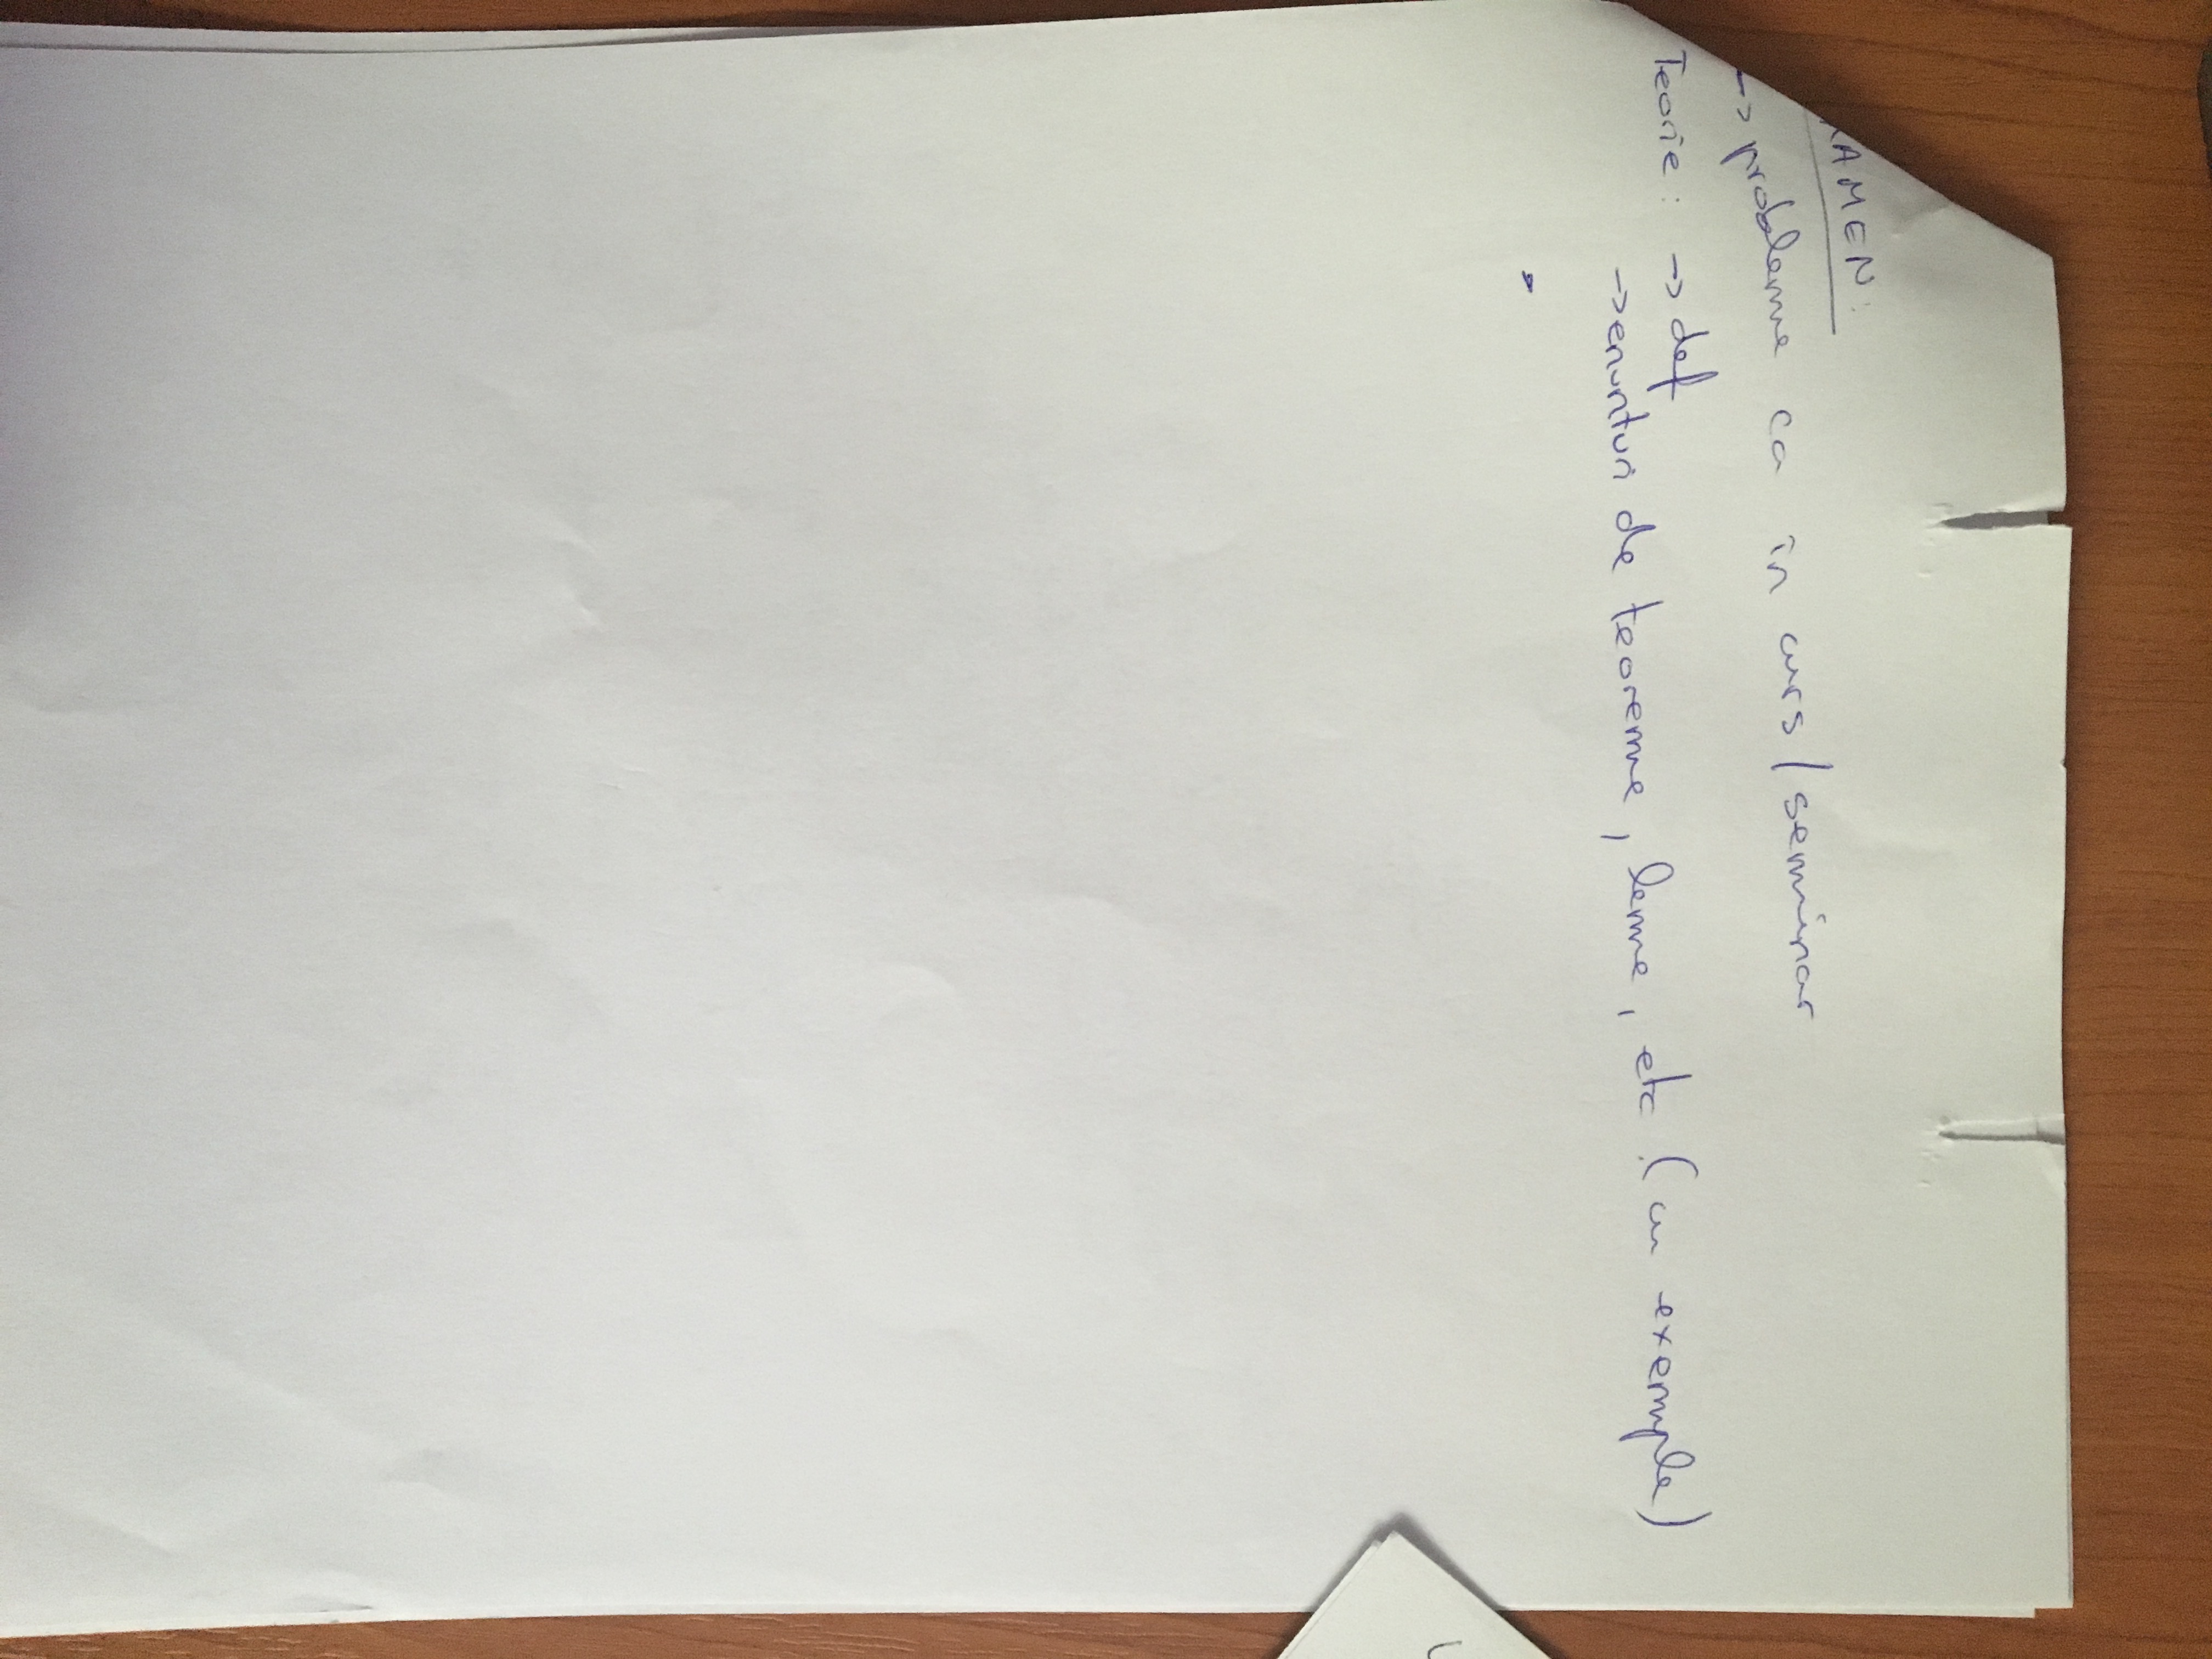 XAMEN:
→ probleme ca în curs/seminar
Teorie: → def
→ enunturi de teoreme, leme, etc. (cu exemple)